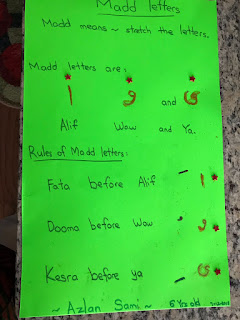 Madd letters
Madd means ~ stretch the letters.
Madd letters are:
ا و and ي
Alif Waw and Ya.
Rules of Madd letters:
Fata before Alif َ ا
Dooma before Waw ُ و
Kesra before ya ِ ي
~ Azlan Sami ~ 6 Yrs old